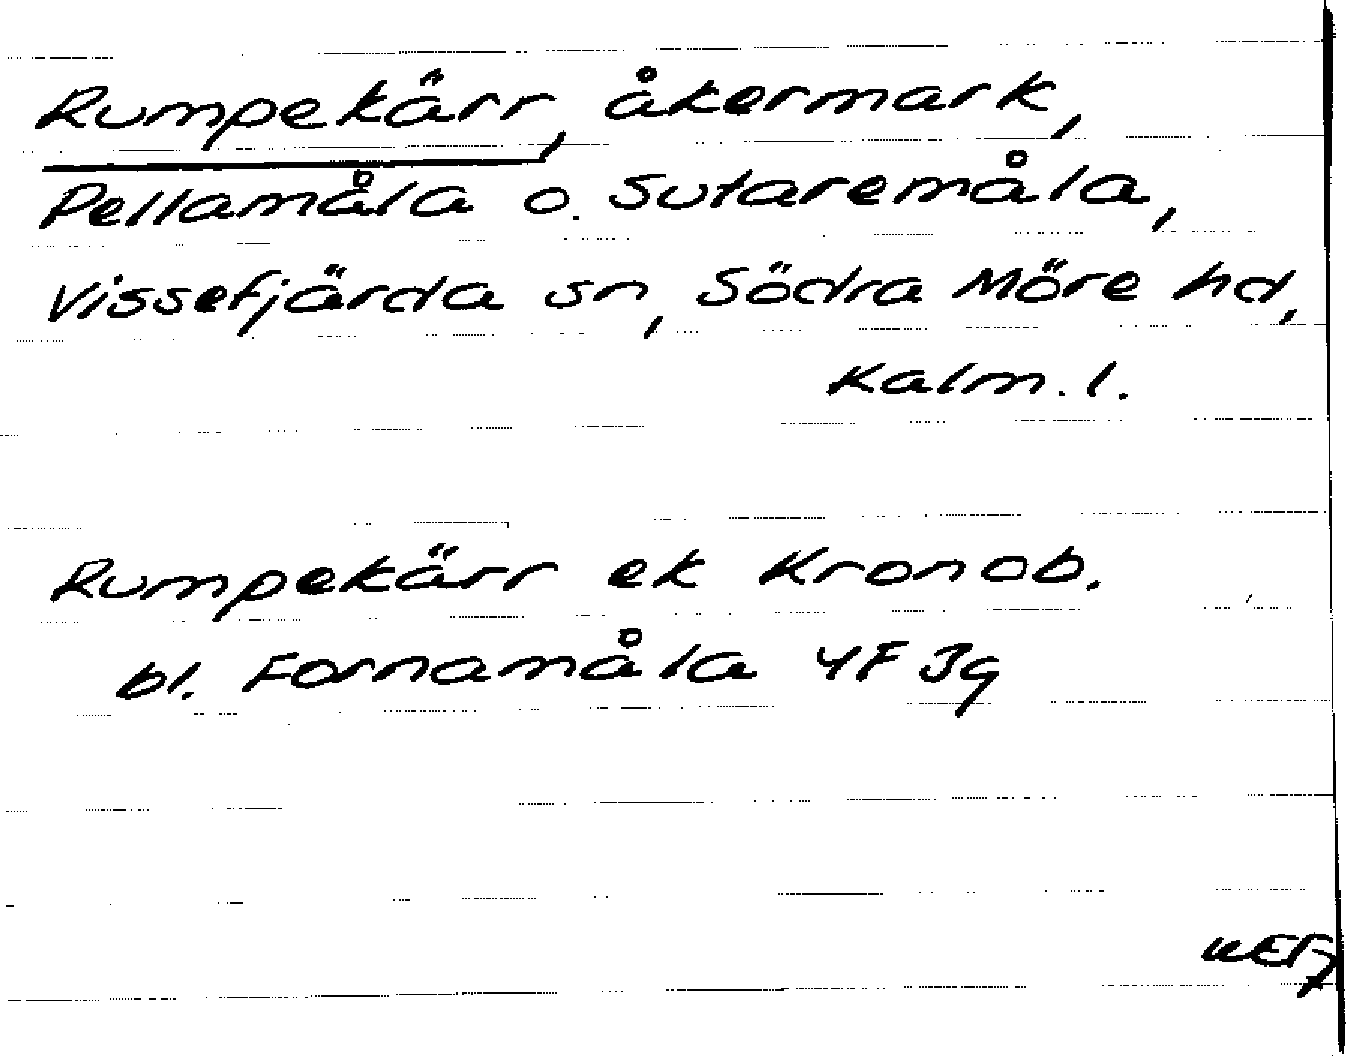 Rumpekärr, åkermark,
Pellamåla o. Sutaremåla,
Vissefjärda sn, Södra Möre hd,
Kalm. l.
Rumpekärr ek Kronob.
bl. Fornamåla 4F 3g